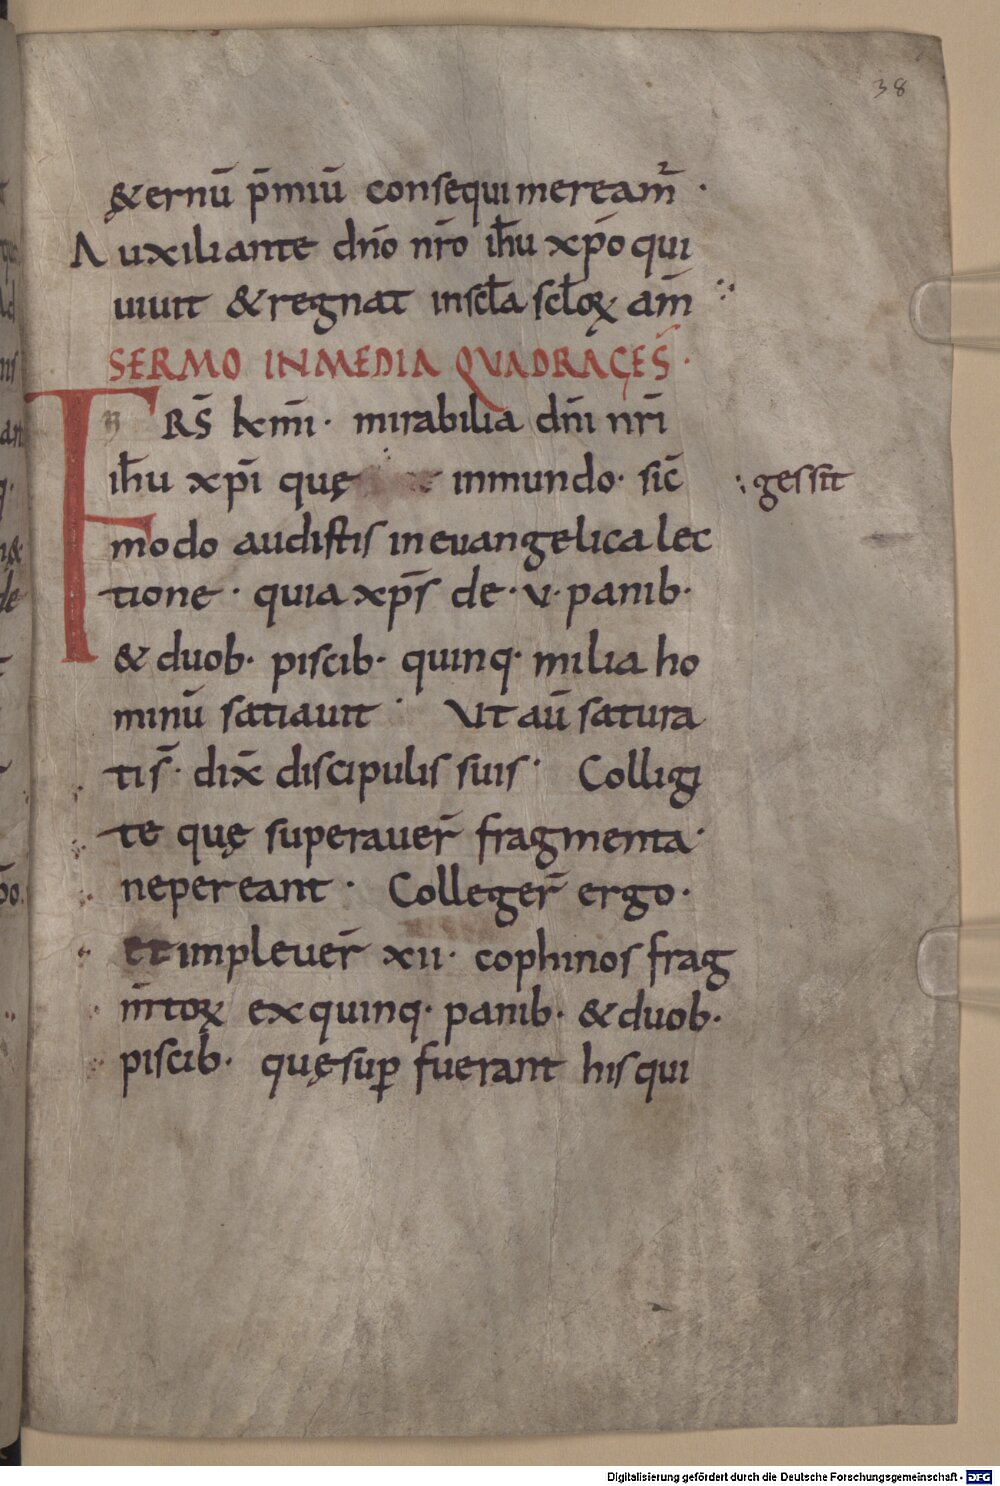 38
&ernū p̄miū consequi meream̄r ·
Auxiliante dn̄o nr̄o ih̄u xp̄o qui
uiuit & regnat in scl̄a scl̄oꝝ am̄
SERMO IN MEDIA QVADRAGES̄ ·
FRS̄ km̄i · mirabilia dn̄i nr̄i
ih̄u xp̄i quę in mundo · sic̄
gessit
modo audistis in euangelica lec
tione · quia xp̄s de · v · panib ·
& duob · piscib · quinq · milia ho
minū satiauit · Ut aū satura
tis̄ · dix̄ discipulis suis · Colligi
te quę superauer̄ fragmenta ·
ne pereant · Colleger̄ ergo ·
et impleuer̄ xii · cophinos frag
m̄toꝝ ex quinq · panib · & duob ·
piscib · quę suꝑ fuerant his qui
Digitalisierung gefördert durch die Deutsche Forschungsgemeinschaft - DFG